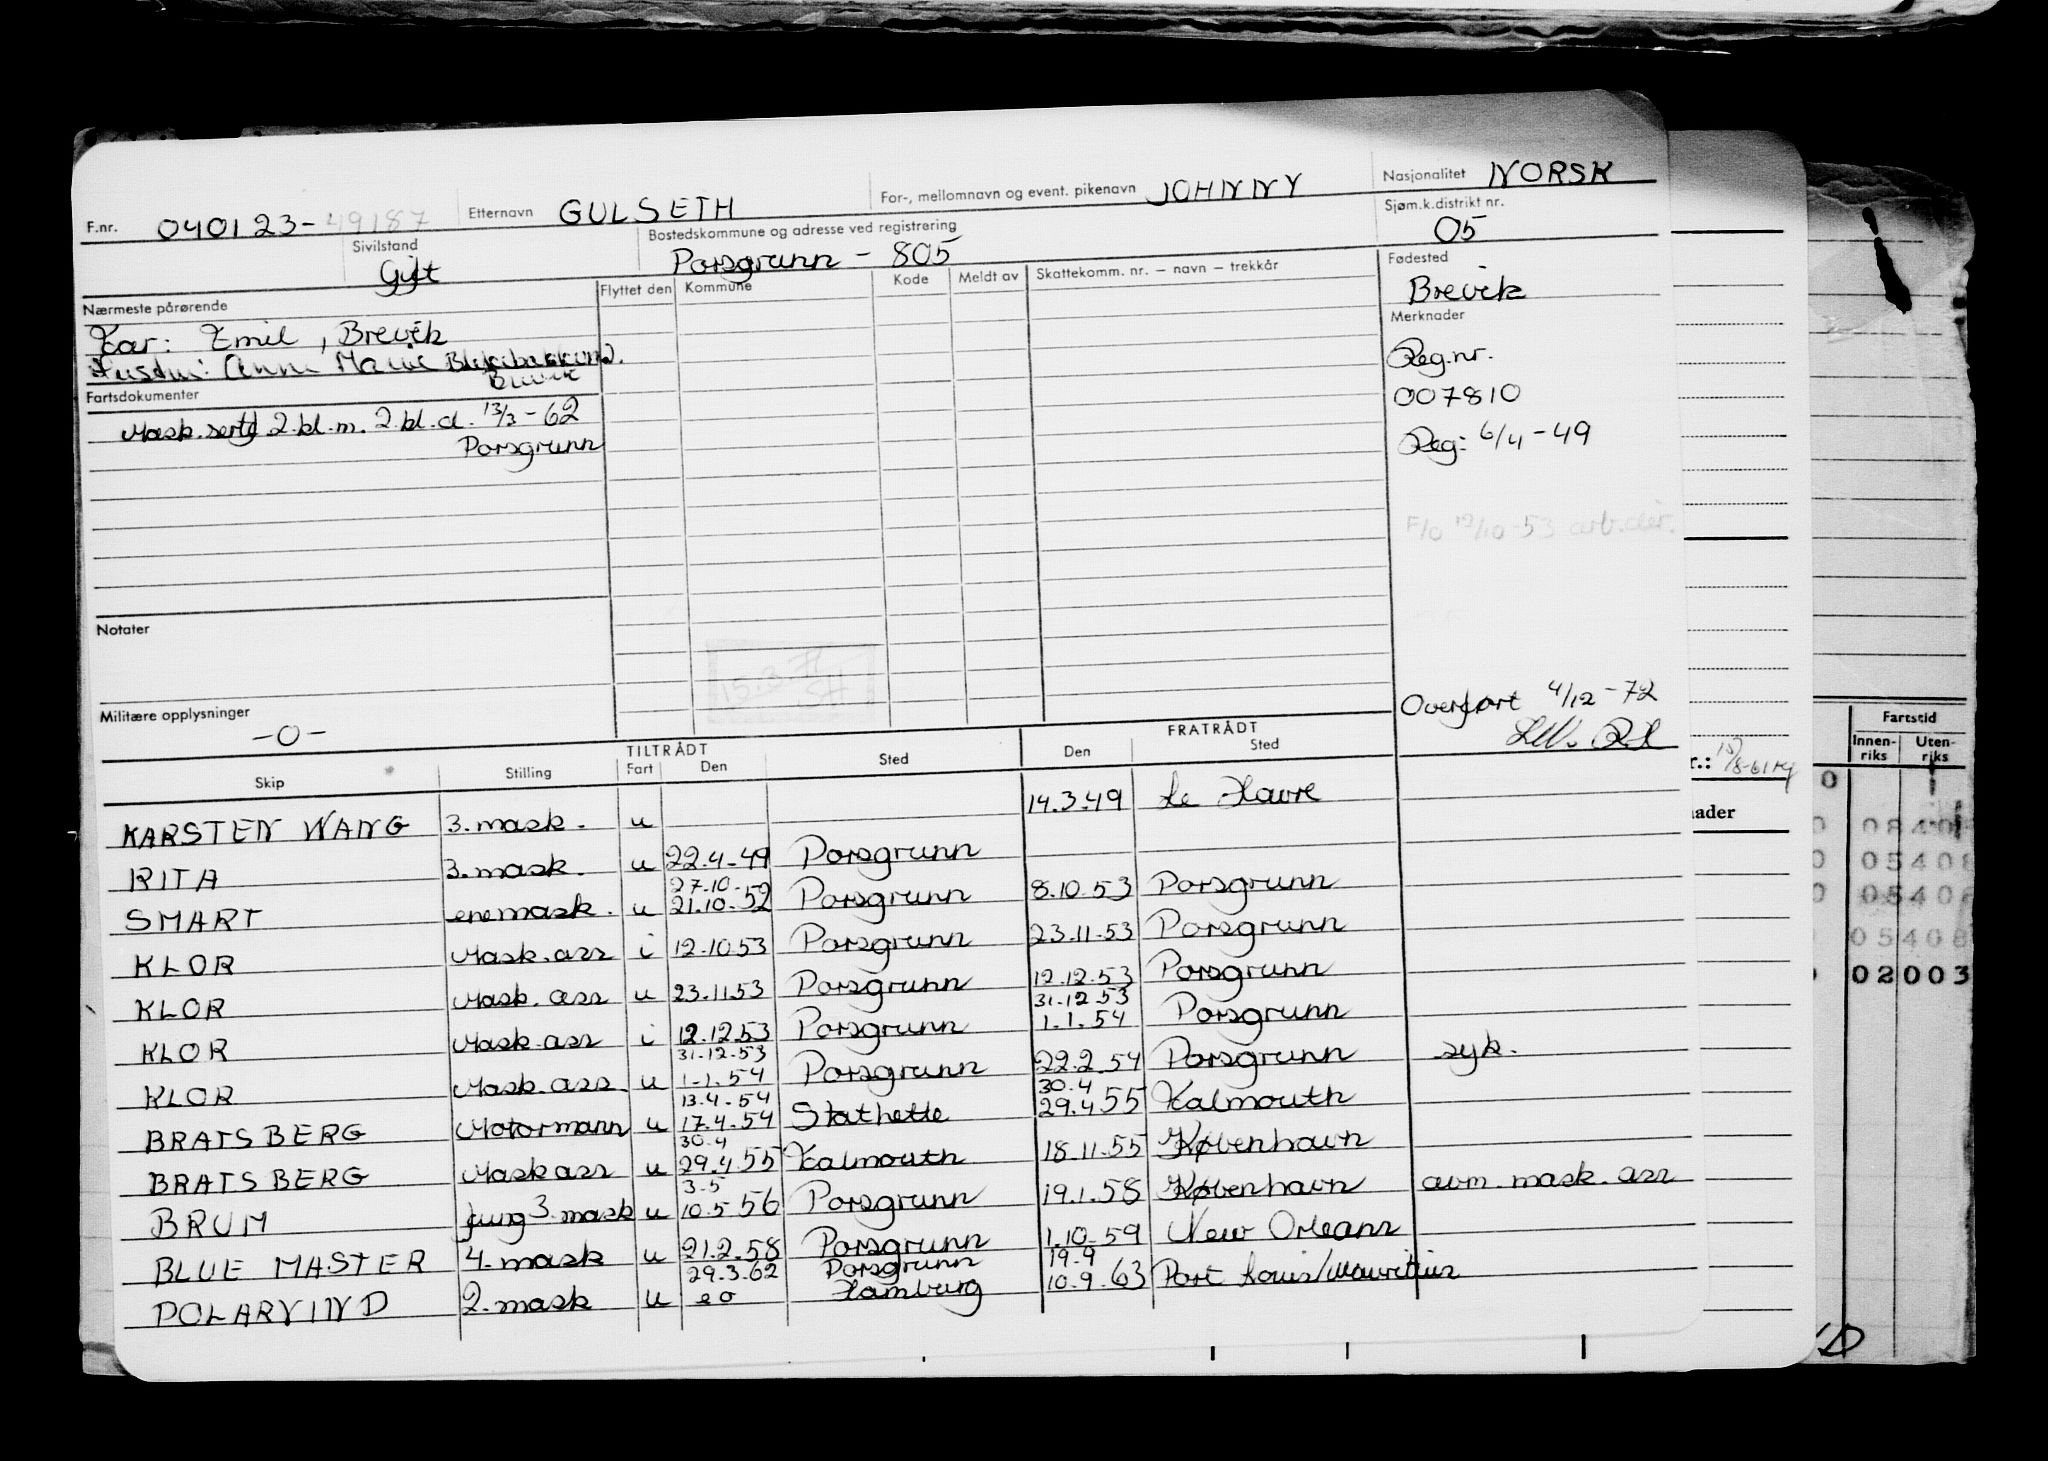 F.nr. 040123-49187 Etternavn GULSETH For-, mellomnavn og event. pikenavn JOHNNY Nasjonalitet NORSK
Sivilstand Gift Bostedskommune og adresse ved registrering Porsgrunn - 805 Sjøm.k.distrikt nr. 05
Nærmeste pårørende Flyttet den Kommune Kode Meldt av Skattekomm. nr. – navn – trekkår Fødested
Far: Emil, Brevik Brevik
Hustru: Anne Marie
Brevik
Merknader
Reg.nr.
007810
Reg: 6/4-49
F/O 12/10-53 arb.der.
Fartsdokumenter
Mask.sert 2.kl.m. 2.kl.d. 13/3-62
Porsgrunn
Notater
15.3.
Militære opplysninger
-0-
Overført 4/12-72
TILTRÅDT FRATRÅDT
Skip Stilling Fart Den Sted Den Sted
KARSTEN WANG 3.mask. u 14.3.49 Le Havre
RITA 3.mask. u 22.4-49 Porsgrunn
27.10-
SMART enemask. u 21.10.52 Porsgrunn 8.10.53 Porsgrunn
KLOR Mask.ass i 12.10.53 Porsgrunn 23.11.53 Porsgrunn
KLOR Mask.ass u 23.11.53 Porsgrunn 12.12.53 Porsgrunn
31.12.53
KLOR Mask.ass i 12.12.53 Porsgrunn 1.1.54 Porsgrunn
31.12.53
KLOR Mask.ass. u 1.1.54 Porsgrunn 22.2.54 Porsgrunn syk.
13.4.54 30.4
BRATSBERG Motormann u 17.4.54 Stathelle 29.4.55 Falmouth
30.4
BRATSBERG Mask ass u 29.4.55 Falmouth 18.11.55 København
3.5
BRUM fung 3.mask u 10.5.56 Porsgrunn 19.1.58 København avm. mask. ass
BLUE MASTER 4.mask u 21.2.58 Porsgrunn 1.10.59 New Orleans
29.3.62 Porsgrunn 19.9
POLARVIND 2.mask u eo Hamburg 10.9.63 Port Louis/Mauritius
Fartstid
Innen-
riks
Uten-
riks
r.:
nader
0
0 0840
0 05408
0 0540
05408
02003